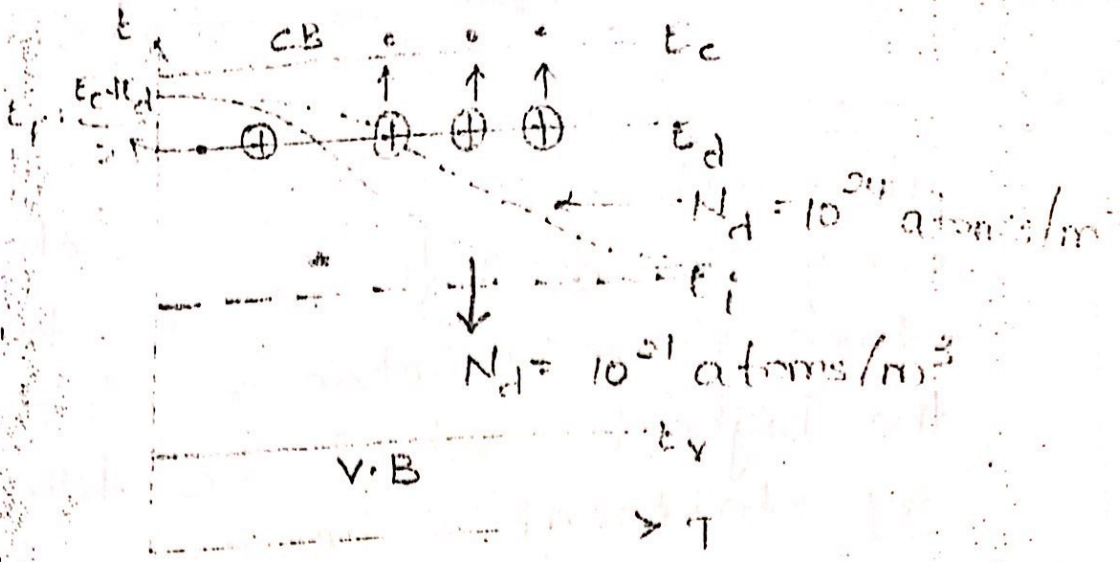 E
CB
Ec
Ed
Nd = 10^24 atoms/m
Ei
Nd = 10^21 atoms/m^3
Ev
V.B
> T